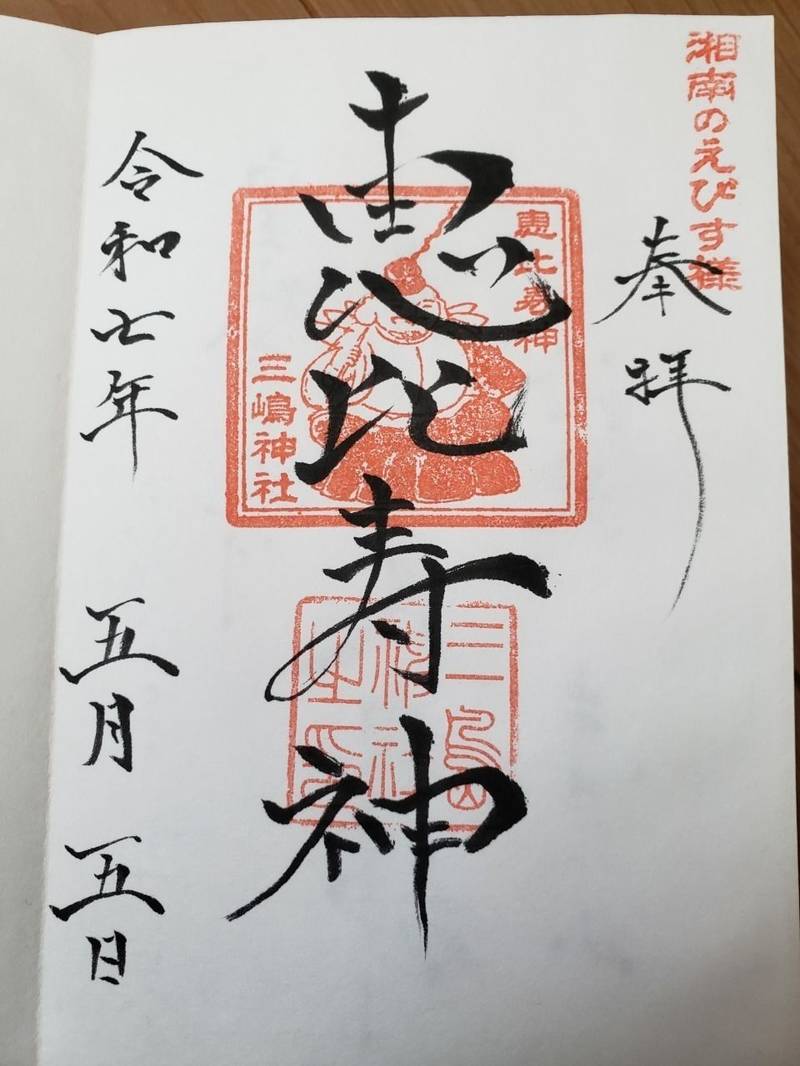 湘南のえびす様
奉拝
恵比寿神
恵比寿神
三嶋神社
三島神社
令和七年 五月 五日